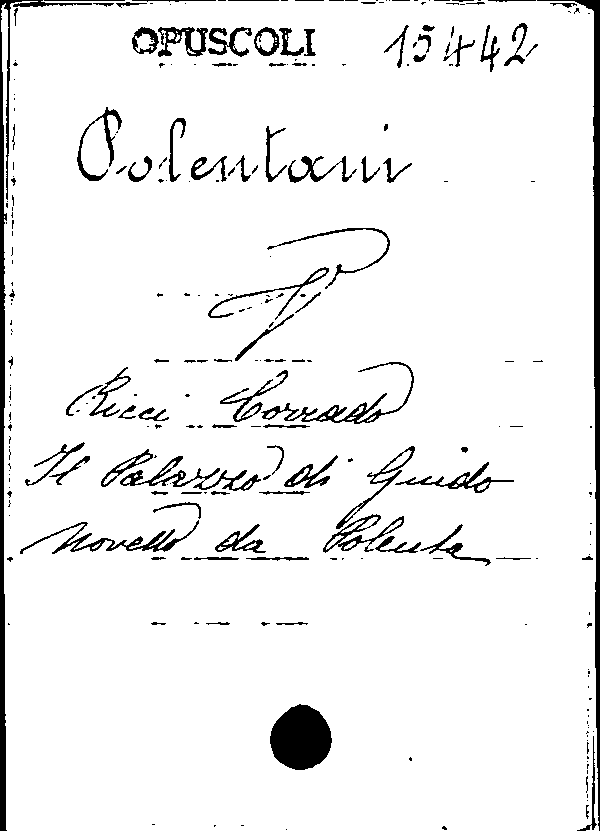 OPUSCOLI 15442
Polentani
V
Ricci Corrado
Il Palazzo di Guido
Novello da Polenta